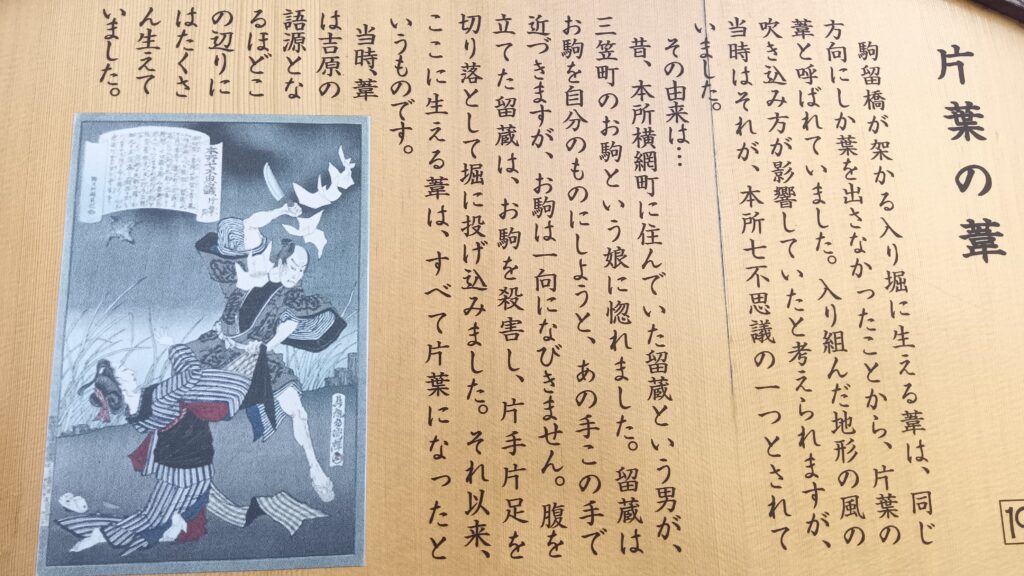 片葉の葦
駒留橋が架かる入り堀に生える葦は、同じ
方向にしか葉を出さなかったことから、片葉の
葦と呼ばれていました。入り組んだ地形の風の
吹き込み方が影響していたと考えられますが、
当時はそれが、本所七不思議の一つとされて
いました。
その由来は…
昔、本所横網町に住んでいた留蔵という男が、
三笠町のお駒という娘に惚れました。留蔵は
お駒を自分のものにしようと、あの手この手で
近づきますが、お駒は一向になびきません。腹を
立てた留蔵は、お駒を殺害し、片手片足を
切り落として堀に投げ込みました。それ以来、
ここに生える葦は、すべて片葉になったと
いうものです。
当時、葦
は吉原の
語源とな
るほどこ
の辺りに
はたくさ
ん生えて
いました。